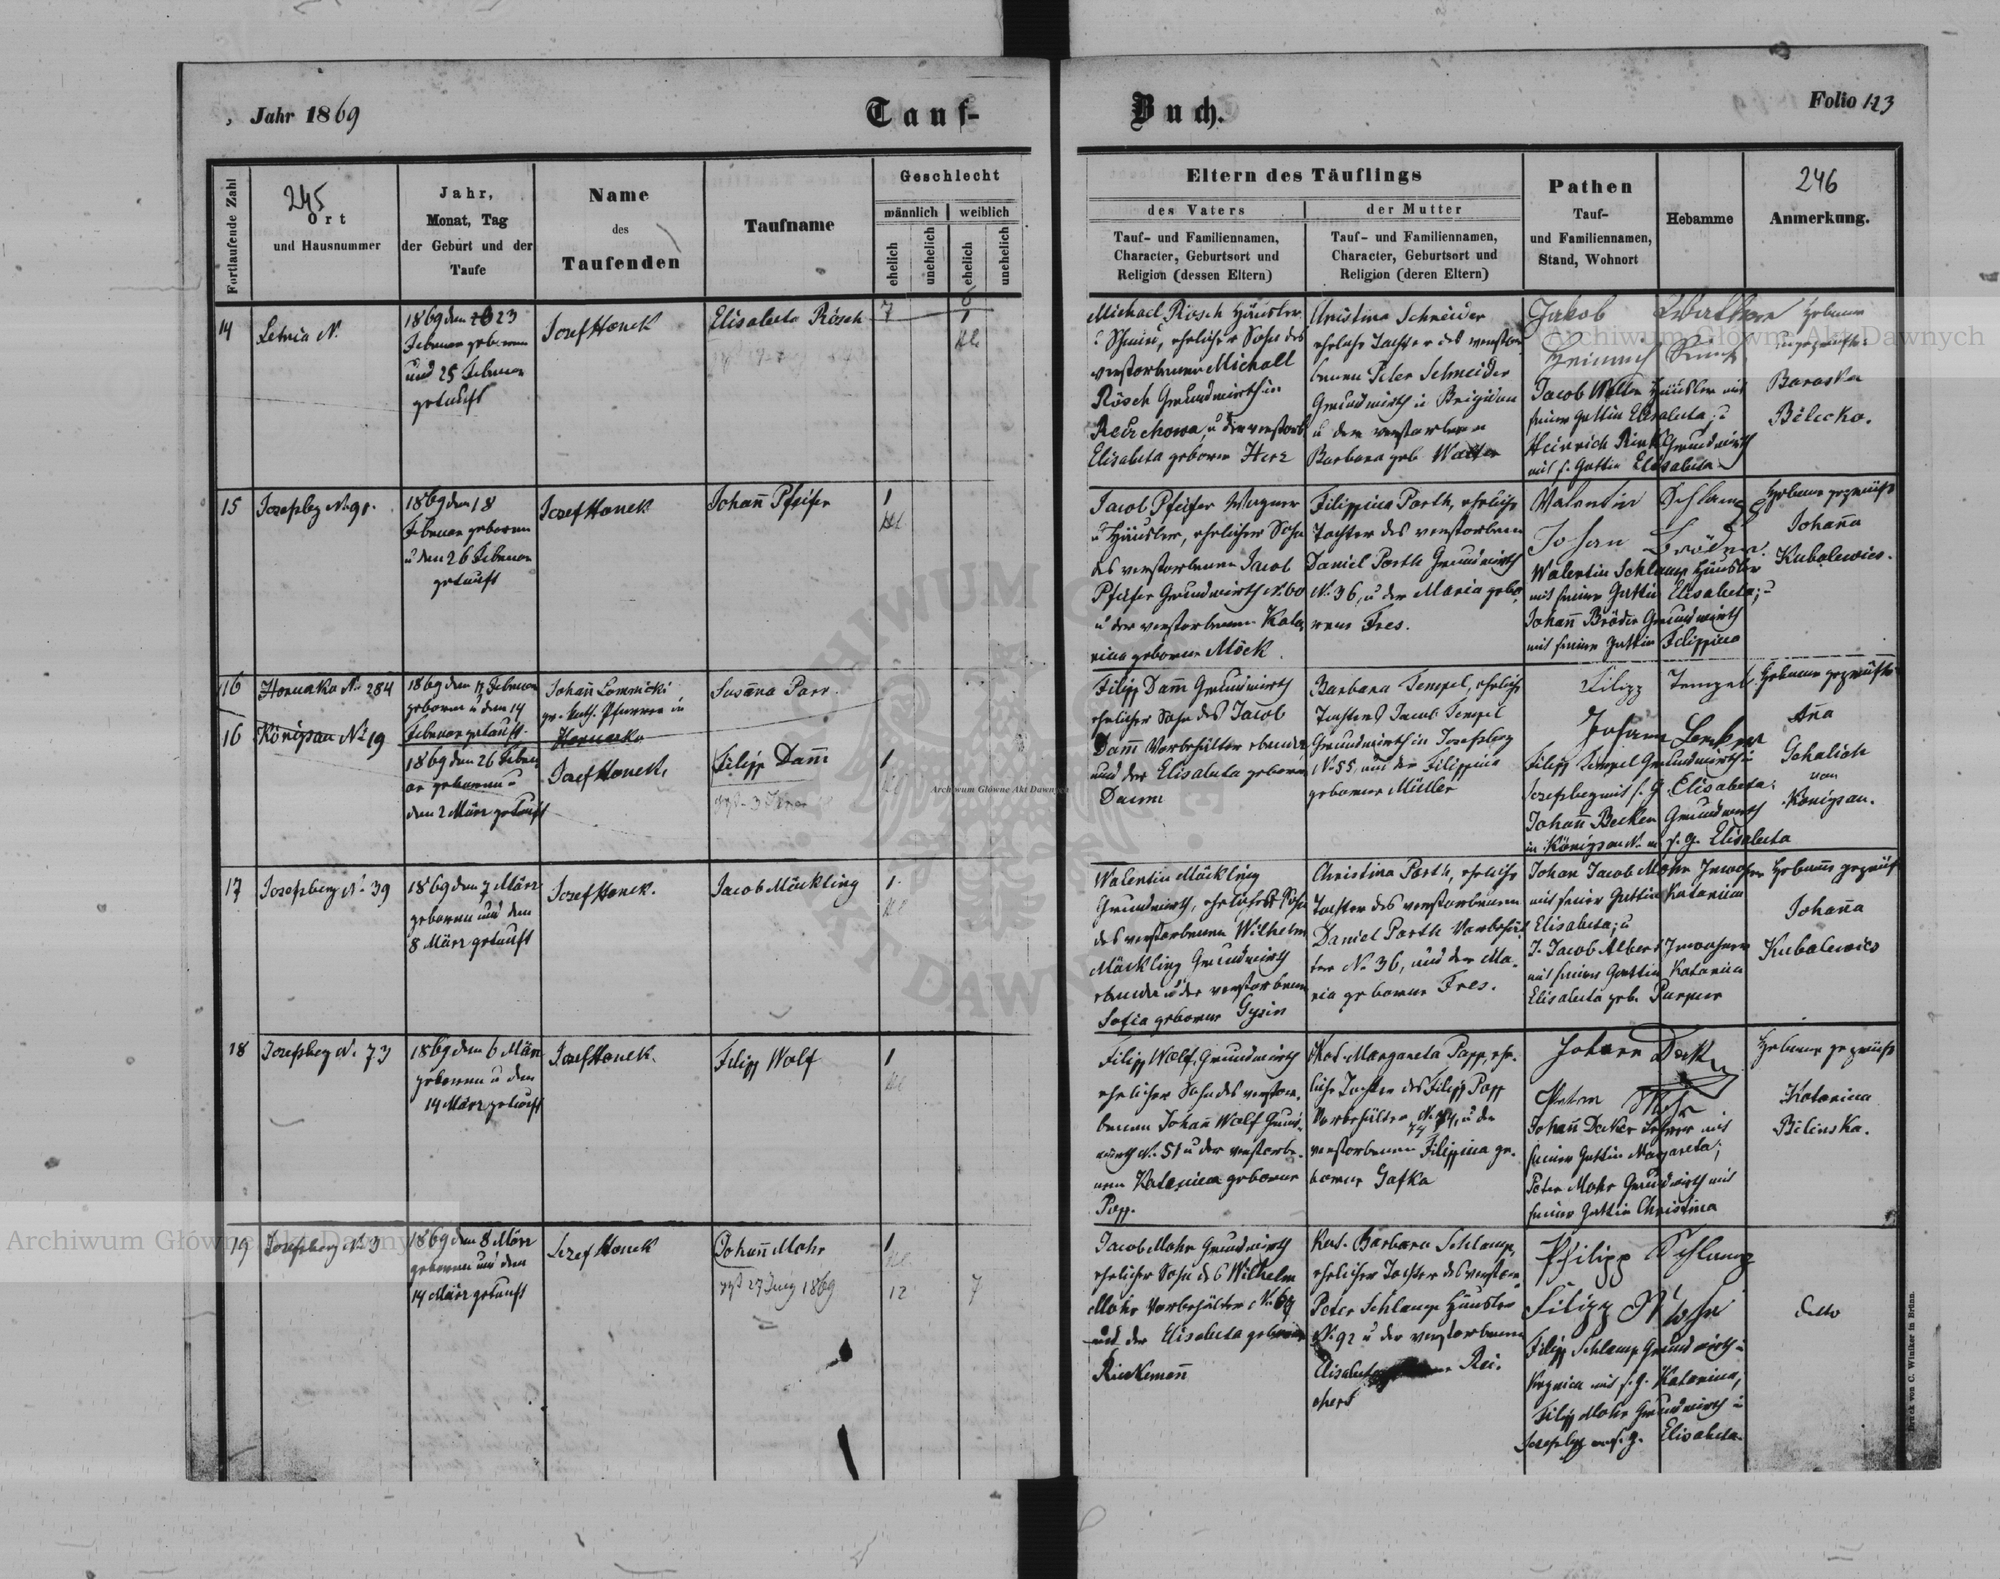 Jahr 1869
Tauf-
Buch.
Folio 123
Fortlaufende Zahl
245
Ort
und Hausnummer
Jahr,
Monat, Tag
der Geburt und der
Taufe
Name
des
Taufenden
Taufname
Geschlecht
männlich
weiblich
ehelich
unehelich
ehelich
unehelich
Eltern des Täuflings
des Vaters
Tauf- und Familiennamen,
Character, Geburtsort und
Religion (dessen Eltern)
der Mutter
Tauf- und Familiennamen,
Character, Geburtsort und
Religion (deren Eltern)
Pathen
Tauf-
und Familiennamen,
Stand, Wohnort
Hebamme
246
Anmerkung.
14
Letnia N.
1869 den 23
Februar geboren
und 25 Februar
getauft
Josef Hanek
Elisabeta Rösch
1
Michael Rösch Häusler
ehelicher Sohn des
verstorbenen Michael
Rösch Grundwirth in
Reichowa, u der verstorb
Elisabeta geborne Herz
Christina Schneider
eheliche Tochter des verstor
benen Peter Schneider
Grundwirth in Brigidau
u der verstorbenen
Barbara geb. Walter
Jakob Walther
Heinrich Rink
Jacob Walter Häusler mit
seiner Gattin Elisabeta; u
Heinrich Rink Grundwirth
mit s. Gattin Elisabeta
Hebame
ungeprüfte
Baraska
Bilecka.
15
Josefsbg No 91.
1869 den 18
Februar geboren
u den 26 Februar
getauft
Josef Hanek
Johañ Pfeifer
1
Jacob Pfeifer Wagner
u Häusler, ehelicher Sohn
des verstorbenen Jacob
Pfeifer Grundwirth N. 60
u der verstorbenen Kata
rina geborne Möck
Filippina Porth, eheliche
Tochter des verstorbenen
Daniel Porth Grundwirth
N. 36, u der Maria gebo
rene Fres.
Valentin Schlamp
Johan Bröder
Walentin Schlamp Häusler
mit seiner Gattin Elisabeta; u
Johañ Bröder Grundwirth
mit seiner Gattin Filippina
Hebame geprüfte
Johaña
Kubalewicz.
16
Horucko N. 284
1869 den 12 Februar
geboren u den 14
Februar getauft.
Johañ Lomnicki
gr. kath. Pfarrer in
Horucko
Susaña Parr.
16
Königsau No 19
1869 den 26 Febru
ar geboren u
den 2 März getauft
Josef Hanek,
Filipp Dam̃
1
Filipp Dam̃ Grundwirth
ehelicher Sohn des Jacob
Dam̃ Vorbehälter
und der Elisabeta geborene
Daum
Barbara Tempel, eheliche
Tochter des Jacob Tempel
Grundwirth in Josefsberg
N. 55, und der Filippina
geborner Müller
Filipp Tempel
Johann Becker
Filipp Tempel Grundwirth in
Josefsberg mit s. G. Elisabeta;
Johañ Becker Grundwirth
in Königsau N. m s. g. Elisabeta
Hebame geprüfte
Aña
Schalich
von
Königsau.
17
Josefsberg N. 39
1869 den 7 März
geboren und den
8 März getauft
Josef Hanek.
Jacob Mäckling
1
Walentin Mäckling
Grundwirth, ehelicher Sohn
des verstorbenen Wilhelm
Mäckling Grundwirth
u der verstorbenen
Sofia geborne Gysin
Christina Porth, eheliche
Tochter des verstorbenen
Daniel Porth Vorbehäl
ter N. 36, und der Ma.
ria geborne Fres.
Johan Jacob Mohr Inwohner
mit seiner Gattin Katarina
Elisabeta; u
J. Jacob Albert Inwohner
mit seiner Gattin Katarina
Elisabeta geb. Purper
Hebame geprüft
Johaña
Kubalewicz
18
Josefsbeg N. 73
1869 den 6 März
geboren u den
14 März getauft
Josef Hanek.
Filipp Wolf
1
Filipp Wolf, Grundwirth
ehelicher Sohn des verstor.
benen Johañ Wolf Grund.
wirth N. 51 u der verstorbe.
nen Katarina geborne
Popp.
Kat. Margareta Popp, ehe.
liche Tochter des Filipp Popp
Vorbehälter N. 74, u der
verstorbenen Filippina ge.
borne Gafka
Johann Decker
Peter Mohr
Johañ Decker Lehrer mit
seiner Gattin Margareta;
Peter Mohr Grundwirth mit
seiner Gattin Christina
Hebame geprüft
Katarina
Bilinska.
19
Josefsberg No 3
1869 den 8 März
geboren und den
14 März getauft
Josef Hanek
Johañ Mohr
27 Juny 1869
1
12
7
Jacob Mohr Grundwirth
ehelicher Sohn des Wilhelm
Mohr Vorbehälter N. 69
und der Elisabeta geborne
Rinkemañ
Kat. Barbara Schlamp,
eheliche Tochter des verstor.
Peter Schlamp Häusler
N. 92 u der verstorbenen
Elisabeta Rei.
chert
Philipp Schlamp
Filipp Mohr
Filipp Schlamp Grundwirth in
mit s. G. Katarina;
Filipp Mohr Grundwirth in
Josefsbg m s. g. Elisabeta.
Detto
Druck von C. Winiker in Brünn.
Archiwum Główne Akt Dawnych
Archiwum Główne Akt Dawnych
Archiwum Główne Akt Dawnych